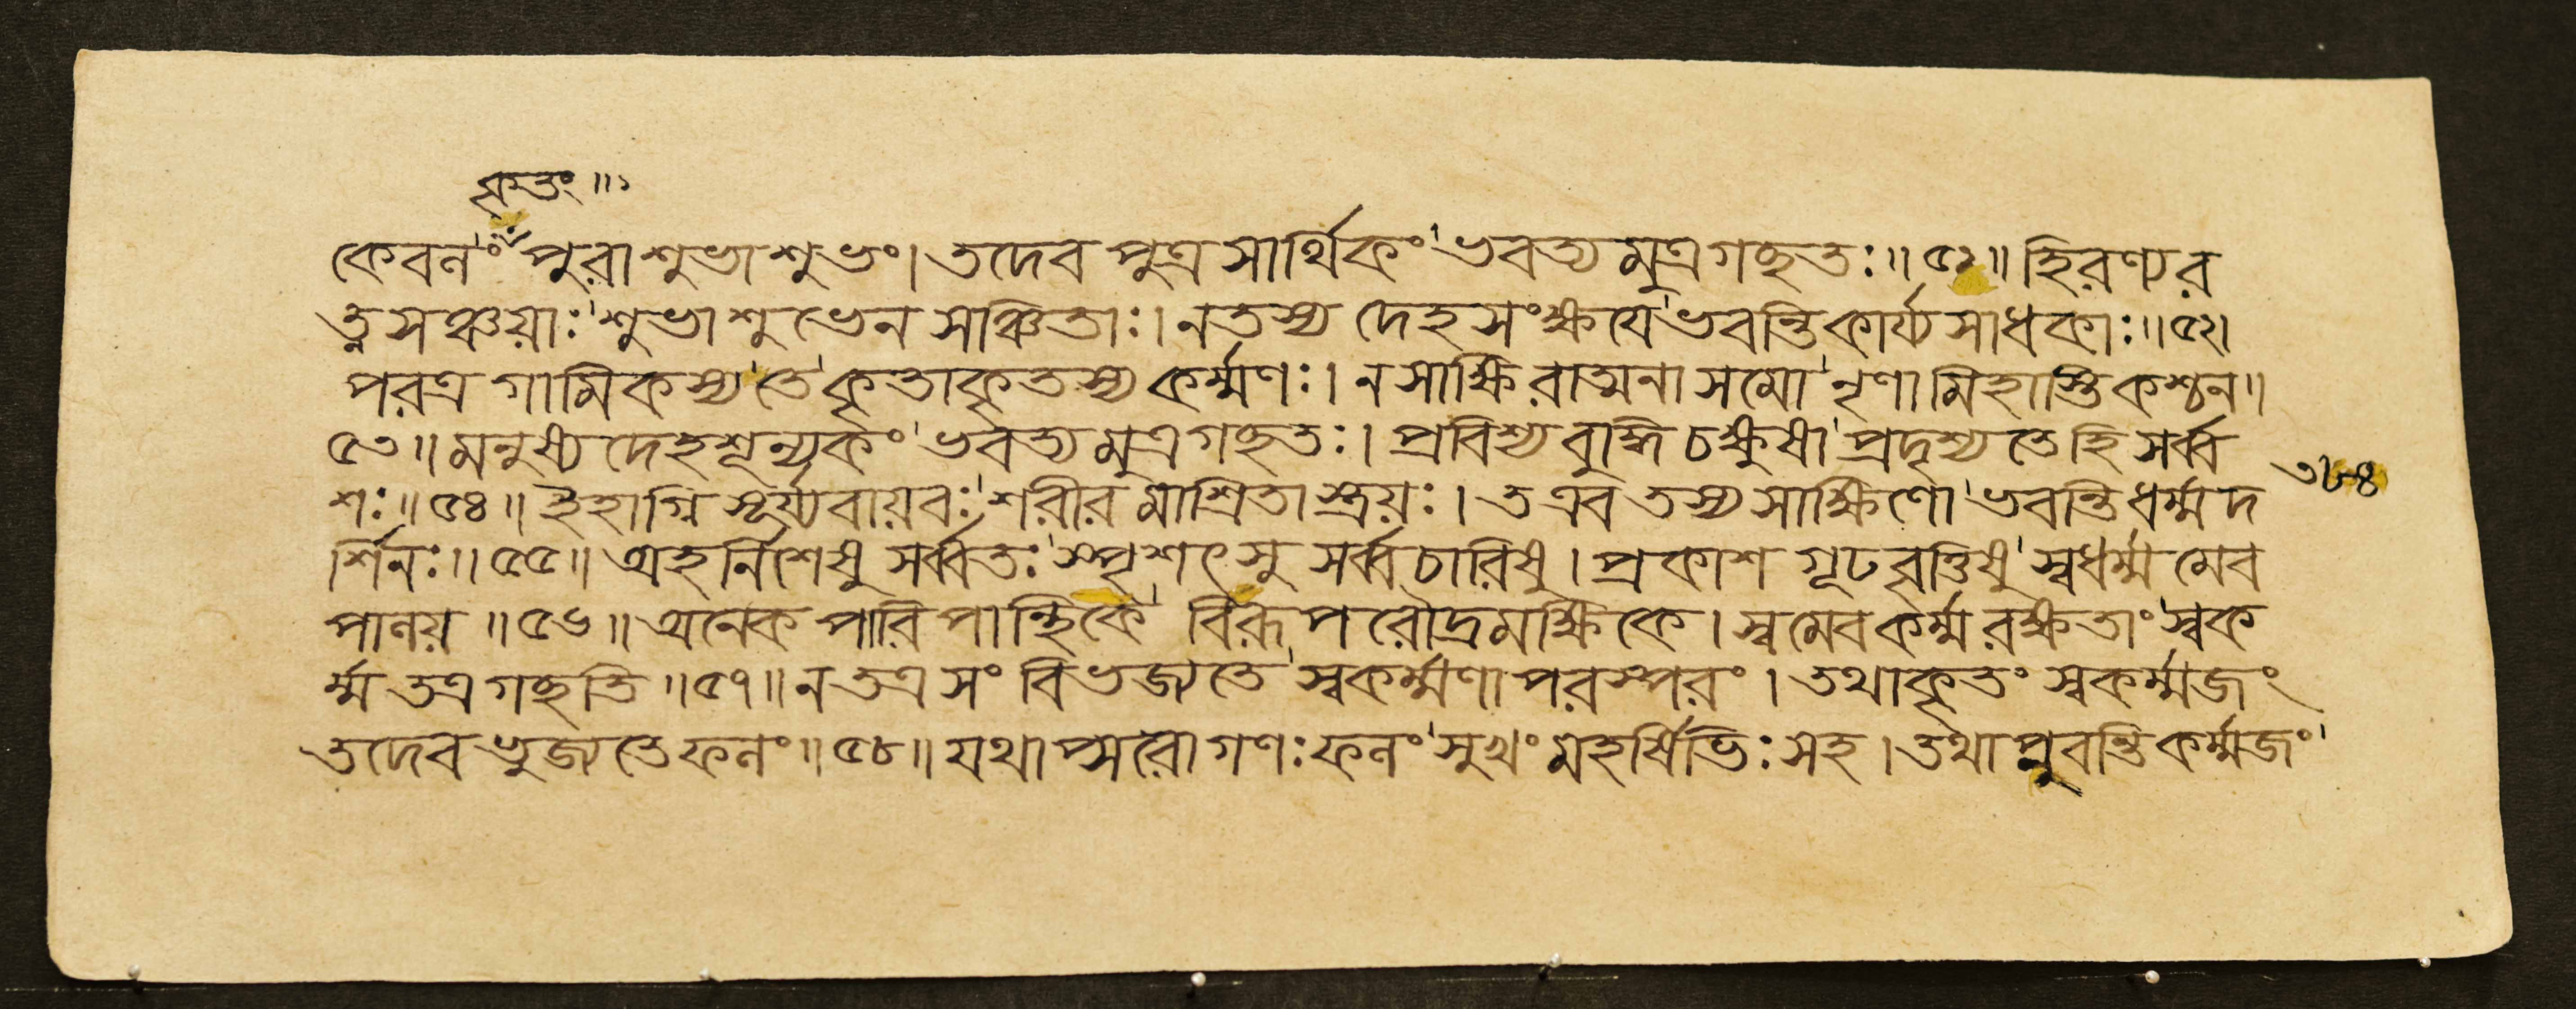 কৃতং ॥১
কেবলং পুরা শুভাশুভং। তদেব পুত্র সার্থিকং ভবত্যমুত্র গচ্ছতঃ॥ ৫১॥ হিরণ্যর
ত্নসঞ্চয়াঃ শুভাশুভেন সঞ্চিতাঃ। ন তস্য দেহসংক্ষয়ে ভবন্তি কার্য্যসাধকাঃ॥ ৫২।
পরত্র গামিকস্য তে কৃতাকৃতস্য কর্ম্মণঃ। ন সাক্ষিরাত্মনা সমো নৃণামিহাস্তি কশ্চন॥
৫৩॥ মনুষ্যদেহশূন্যকং ভবত্যমুত্র গচ্ছতঃ। প্রবিশ্য বুদ্ধিচক্ষুষা প্রদৃশ্যতে হি সর্ব্ব
শঃ॥ ৫৪॥ ইহাগ্নিসূর্য্যবায়বঃ শরীরমাশ্রিতাস্ত্রয়ঃ। ত এব তস্য সাক্ষিণো ভবন্তি ধর্ম্মদ
৩৮৪
র্শিনঃ॥ ৫৫॥ অহর্নিশেষু সর্ব্বতঃ স্পৃশৎসু সর্ব্বচারিষু। প্রকাশগূঢবৃত্তিষু স্বধর্ম্মমেব
পালয়॥ ৫৬॥ অনেকপারিপান্থিকে বিরূপরৌদ্রমক্ষিকে। স্বমেব কর্ম্ম রক্ষতাং স্বক
র্ম্ম তত্র গচ্ছতি॥ ৫৭॥ ন তত্র সংবিভজ্যতে স্বকর্ম্মণা পরস্পরং। তথাকৃতং স্বকর্ম্মজং
তদেব ভুজ্যতে ফলং॥ ৫৮॥ যথাপ্সরোগণঃ ফলং সুখং মহর্ষিভিঃ সহ। তথাপ্নুবন্তি কর্ম্মজং